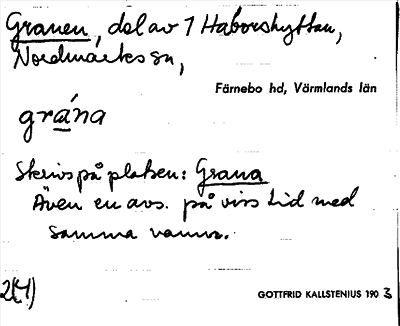 Granen, del av 1 Haborshyttan,
Nordmarks sn,
Färnebo hd, Värmlands län
grána
Skrivs på platsen: Grana
Även en avs. på viss tid med
samma namn.
2(4)
GOTTFRID KALLSTENIUS 1903